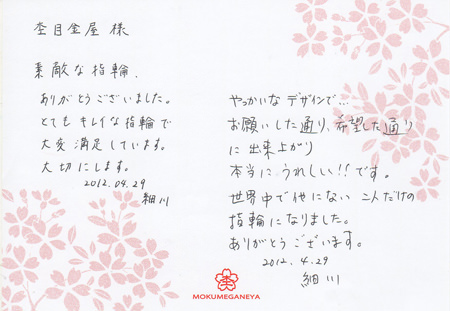 杢目金屋 様
素敵な指輪、
ありがとうございました。
とても キレイな指輪で
大変 満足しています。
大切にします。
2012.04.29
細川
やっかいな デザインで…
お願いした通り、希望した通り
に 出来上がり
本当に うれしい!! です。
世界中で他にない 二人だけの
指輪になりました。
ありがとう ございます。
2012.4.29
細川
MOKUMEGANEYA